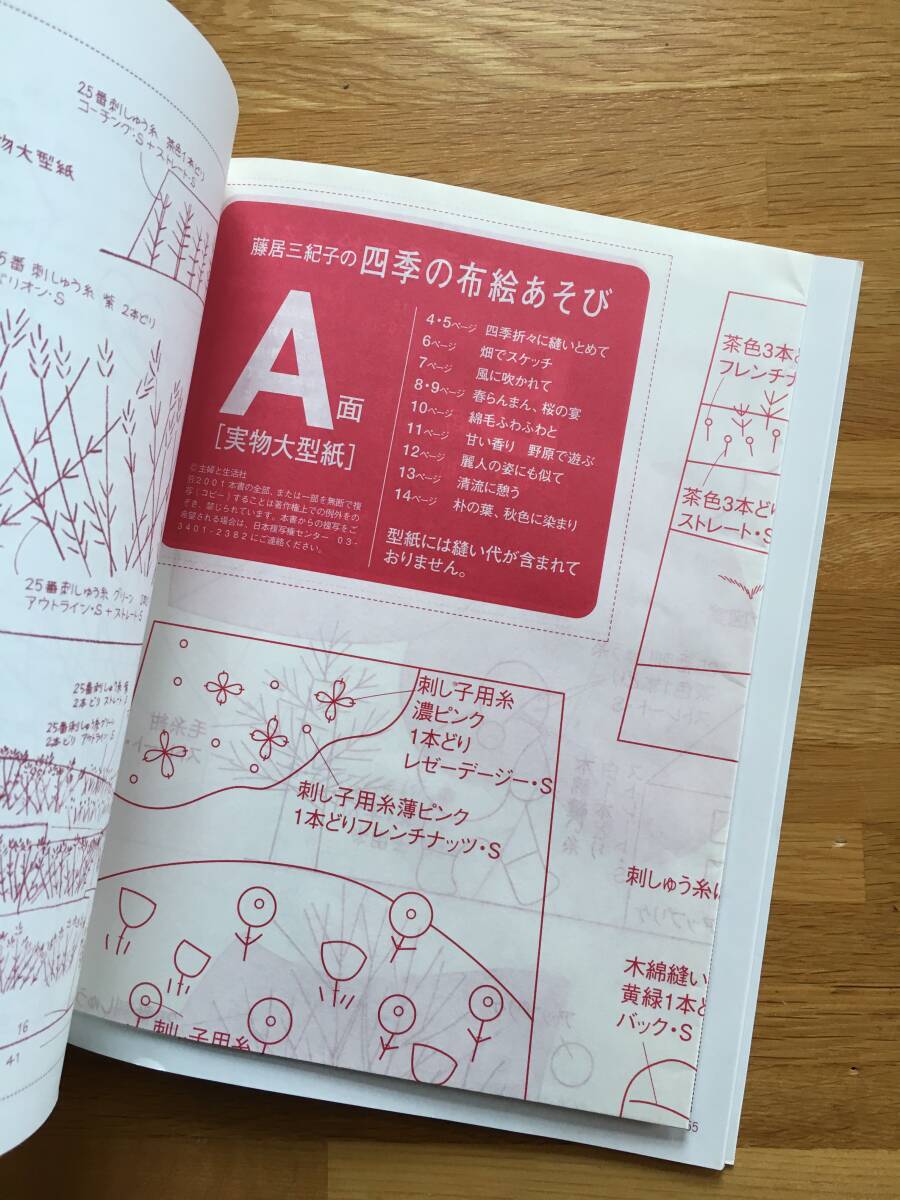 25番刺しゅう糸 茶色1本どり
コーチング・S+ストレート・S
物大型紙
5番刺しゅう糸 紫 2本どり
リオン・S
25番刺しゅう糸 グリーン
アウトライン・S+ストレート・S
25番刺しゅう糸
2本どりストレート
25番刺しゅう糸グリーン
2本どり アウトライン・S
16
41
藤居三紀子の四季の布絵あそび
A面
[実物大型紙]
©主婦と生活社
Ⓡ2001 本書の全部、または一部を無断で複
写(コピー)することは著作権上での例外をの
ぞき、禁じられています。本書からの複写をご
希望される場合は、日本複写権センター 03-
3401-2382にご連絡ください。
4・5ページ 四季折々に縫いとめて
6ページ 畑でスケッチ
7ページ 風に吹かれて
8・9ページ 春らんまん、桜の宴
10ページ 綿毛ふわふわと
11ページ 甘い香り 野原で遊ぶ
12ページ 麗人の姿にも似て
13ページ 清流に憩う
14ページ 朴の葉、秋色に染まり
型紙には縫い代が含まれて
おりません。
茶色3本ど
フレンチナ
茶色3本どり
ストレート・S
刺し子用糸
濃ピンク
1本どり
レゼーデージー・S
刺し子用糸薄ピンク
1本どりフレンチナッツ・S
刺し子用糸
刺しゅう糸
木綿縫い
黄緑1本ど
バック・S
55